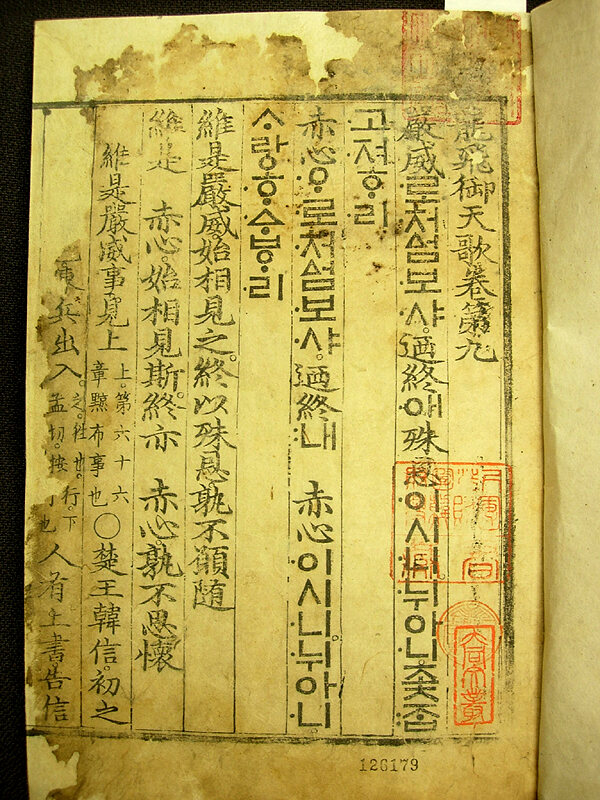 龍飛御天歌卷第九
嚴威로처ᅀᅥᆷ보샤。迺終애殊恩이시니뉘아니좇ᄌᆞᆸ
고져ᄒᆞ리
赤心ᄋᆞ로처ᅀᅥᆷ보샤。迺終내 赤心이시니。뉘아니
ᄉᆞ라ᇰᄒᆞᅀᆞᄫᆞ리
維是嚴威始相見之。終以殊恩孰不願隨
維是 赤心。始相見斯。終亦 赤心孰不思懷
維是嚴威事見上
上。第六十六
章黥布事也
○楚王韓信。初之
兵出入。
之。徃也。行。下
孟切。按 也
人有上書告信
126179